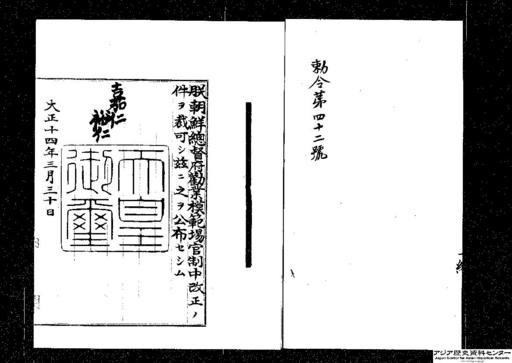 勅令第四十二號
朕朝鮮總督府勸業模範場官制中改正ノ
件ヲ裁可シ玆ニ之ヲ公布セシム
嘉仁
裕仁
天皇
御璽
大正十四年三月三十日
アジア歴史資料センター
Japan Center for Asian Historical Records